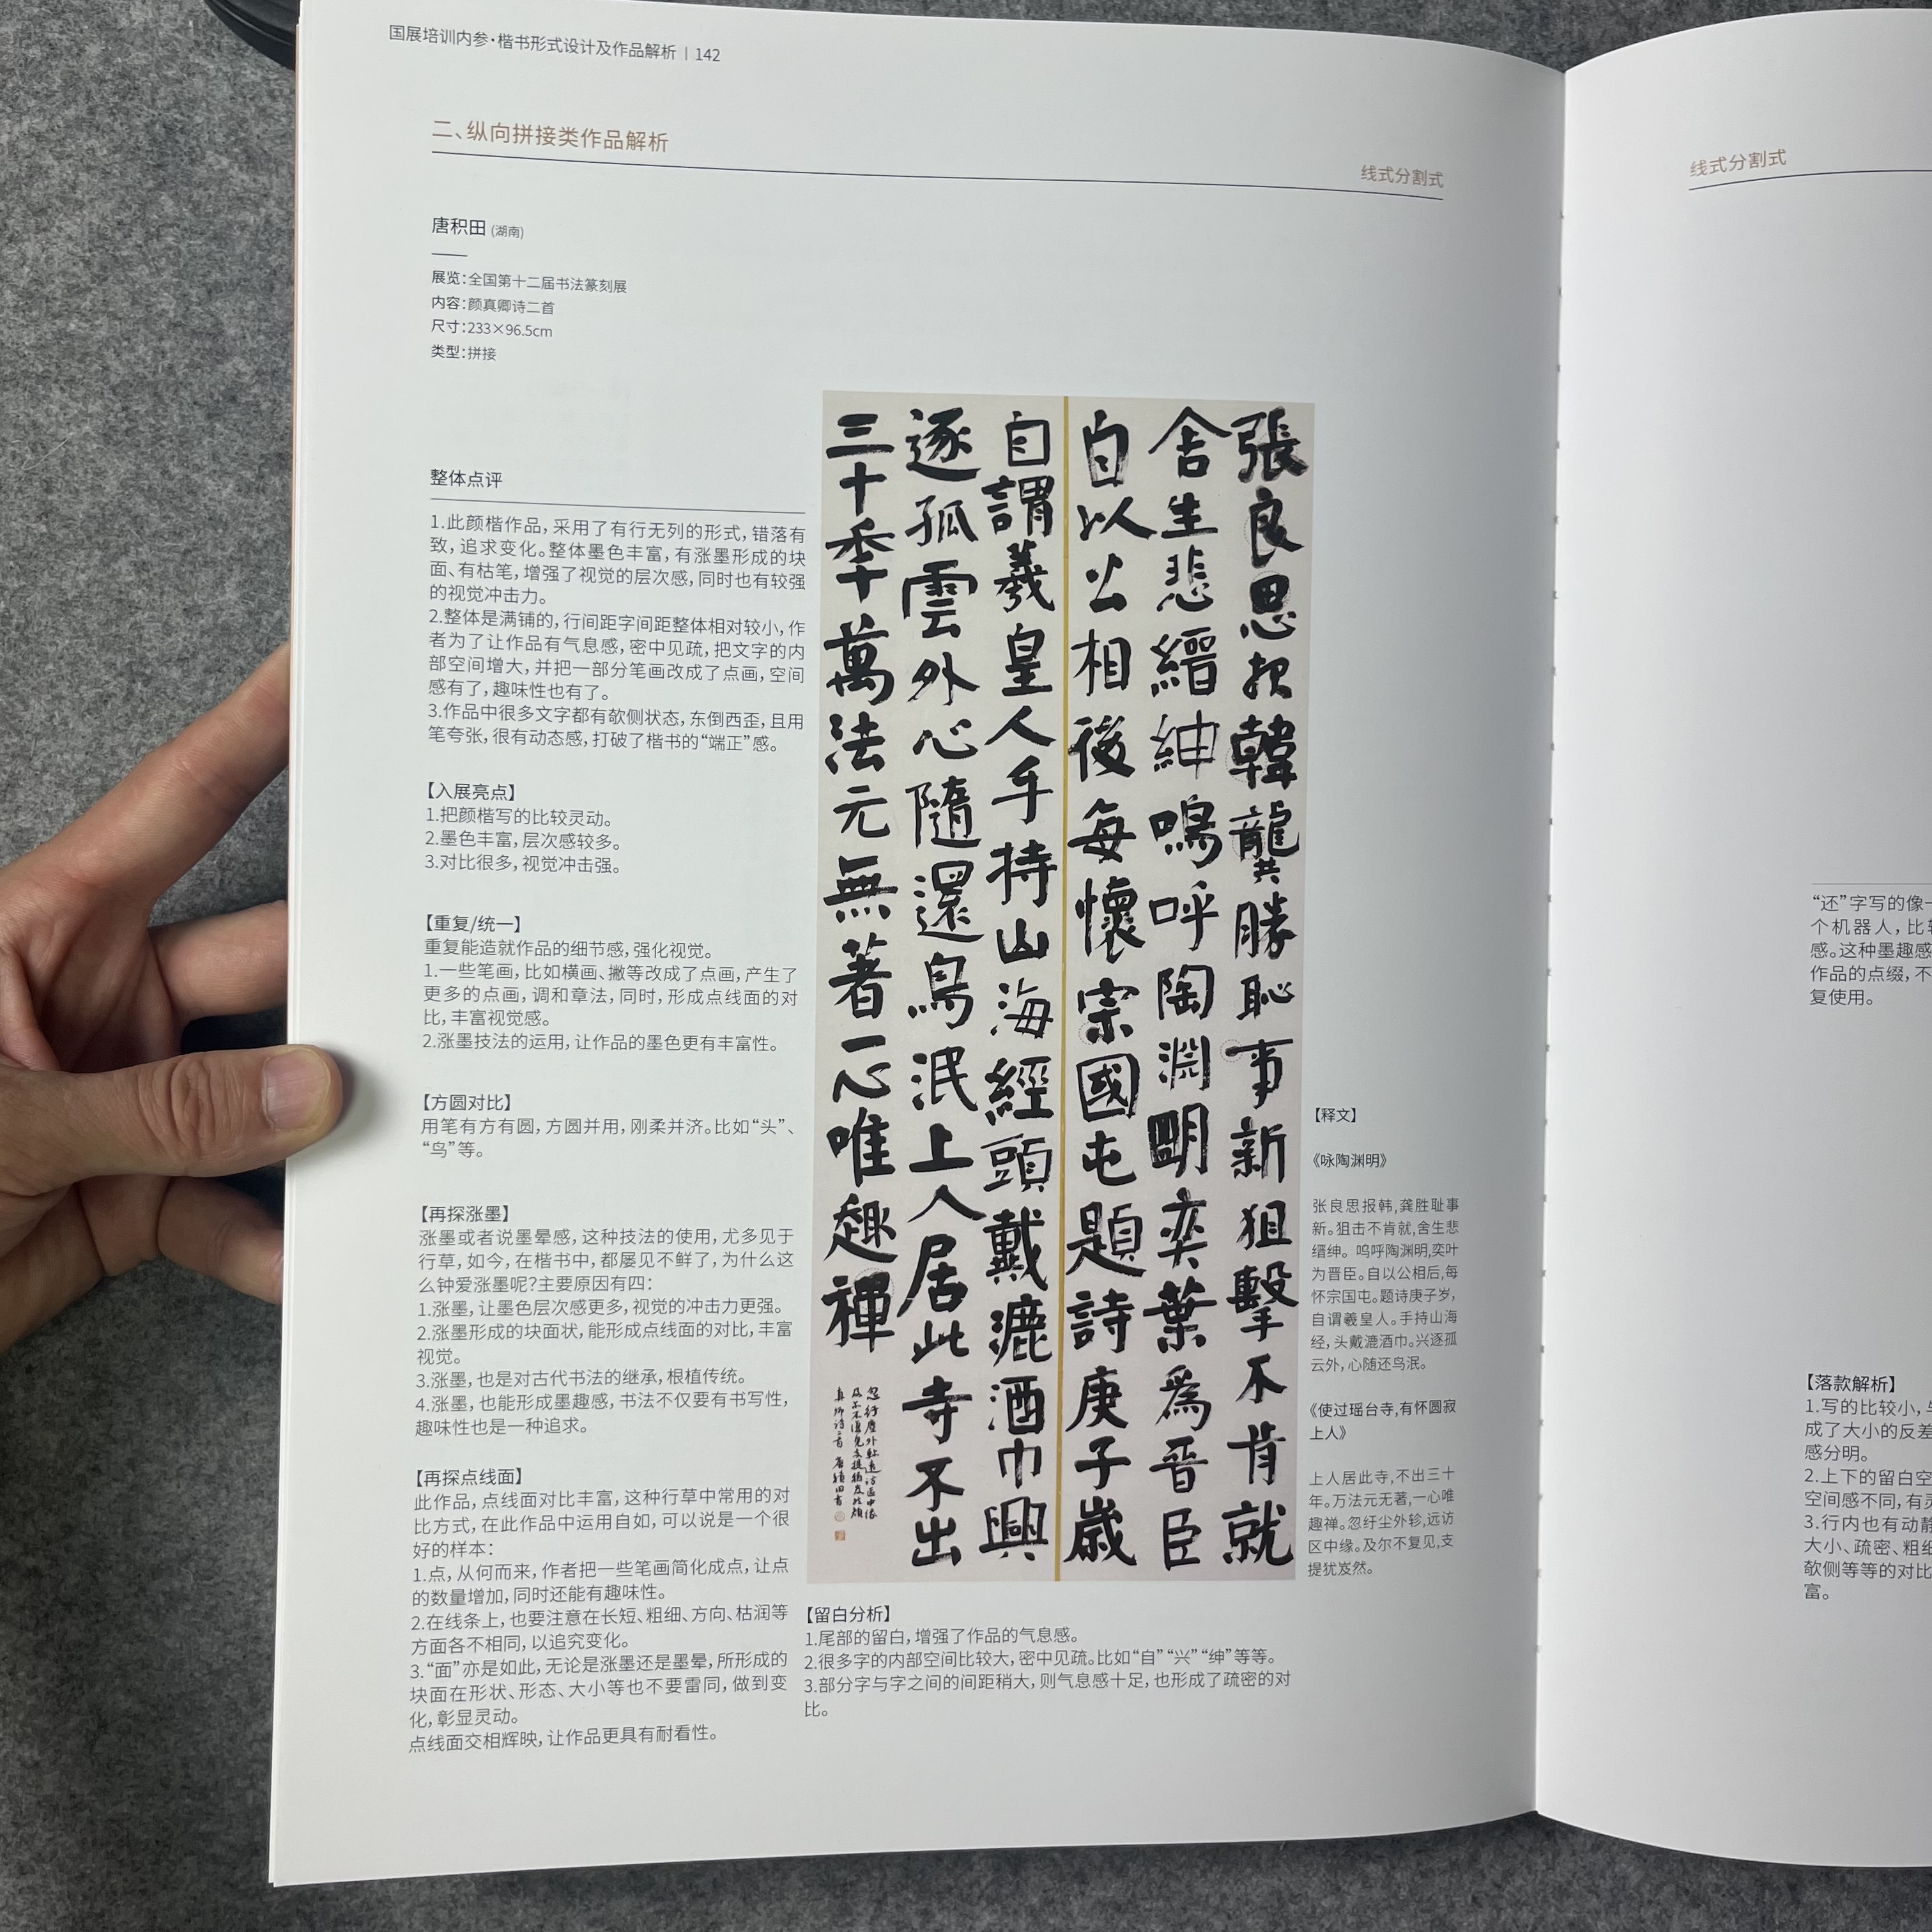 国展培训内参·楷书形式设计及作品解析 | 142
二、纵向拼接类作品解析
线式分割式
唐积田 (湖南)
展览:全国第十二届书法篆刻展
内容:颜真卿诗二首
尺寸:233×96.5cm
类型:拼接
整体点评
1.此颜楷作品,采用了有行无列的形式,错落有
致,追求变化。整体墨色丰富,有涨墨形成的块
面、有枯笔,增强了视觉的层次感,同时也有较强
的视觉冲击力。
2.整体是满铺的,行间距字间距整体相对较小,作
者为了让作品有气息感,密中见疏,把文字的内
部空间增大,并把一部分笔画改成了点画,空间
感有了,趣味性也有了。
3.作品中很多文字都有欹侧状态,东倒西歪,且用
笔夸张,很有动态感,打破了楷书的“端正”感。
【入展亮点】
1.把颜楷写的比较灵动。
2.墨色丰富,层次感较多。
3.对比很多,视觉冲击强。
【重复/统一】
重复能造就作品的细节感,强化视觉。
1.一些笔画,比如横画、撇等改成了点画,产生了
更多的点画,调和章法,同时,形成点线面的对
比,丰富视觉感。
2.涨墨技法的运用,让作品的墨色更有丰富性。
【方圆对比】
用笔有方有圆,方圆并用,刚柔并济。比如“头”、
“鸟”等。
【再探涨墨】
涨墨或者说墨晕感,这种技法的使用,尤多见于
行草,如今,在楷书中,都屡见不鲜了,为什么这
么钟爱涨墨呢?主要原因有四:
1.涨墨,让墨色层次感更多,视觉的冲击力更强。
2.涨墨形成的块面状,能形成点线面的对比,丰富
视觉。
3.涨墨,也是对古代书法的继承,根植传统。
4.涨墨,也能形成墨趣感,书法不仅要有书写性,
趣味性也是一种追求。
【再探点线面】
此作品,点线面对比丰富,这种行草中常用的对
比方式,在此作品中运用自如,可以说是一个很
好的样本:
1.点,从何而来,作者把一些笔画简化成点,让点
的数量增加,同时还能有趣味性。
2.在线条上,也要注意在长短、粗细、方向、枯润等
方面各不相同,以追究变化。
3.“面”亦是如此,无论是涨墨还是墨晕,所形成的
块面在形状、形态、大小等也不要雷同,做到变
化,彰显灵动。
点线面交相辉映,让作品更具有耐看性。
張良思报韓龔勝恥事新狙擊不肯就
舍生悲縉紳嗚呼陶淵明奕葉為晋臣
自以公相後每懷宗國屯題詩庚子歲
自謂羲皇人手持山海經頭戴漉酒巾興
逐孤雲外心隨還鳥泯上人居此寺不出
三十季萬法元無著一心唯趣禪
【释文】
《咏陶渊明》
张良思报韩,龚胜耻事
新。狙击不肯就,舍生悲
缙绅。呜呼陶渊明,奕叶
为晋臣。自以公相后,每
怀宗国屯。题诗庚子岁,
自谓羲皇人。手持山海
经,头戴漉酒巾。兴逐孤
云外,心随还鸟泯。
《使过瑶台寺,有怀圆寂
上人》
上人居此寺,不出三十
年。万法元无著,一心唯
趣禅。忽纡尘外轸,远访
区中缘。及尔不复见,支
提犹岌然。
【留白分析】
1.尾部的留白,增强了作品的气息感。
2.很多字的内部空间比较大,密中见疏。比如“自”“兴”“绅”等等。
3.部分字与字之间的间距稍大,则气息感十足,也形成了疏密的对
比。
线式分割式
“还”字写的像一
个机器人,比较
感。这种墨趣感
作品的点缀,不
复使用。
【落款解析】
1.写的比较小,
成了大小的反差
感分明。
2.上下的留白空
空间感不同,有
3.行内也有动静
大小、疏密、粗细
欹侧等等的对比
富。